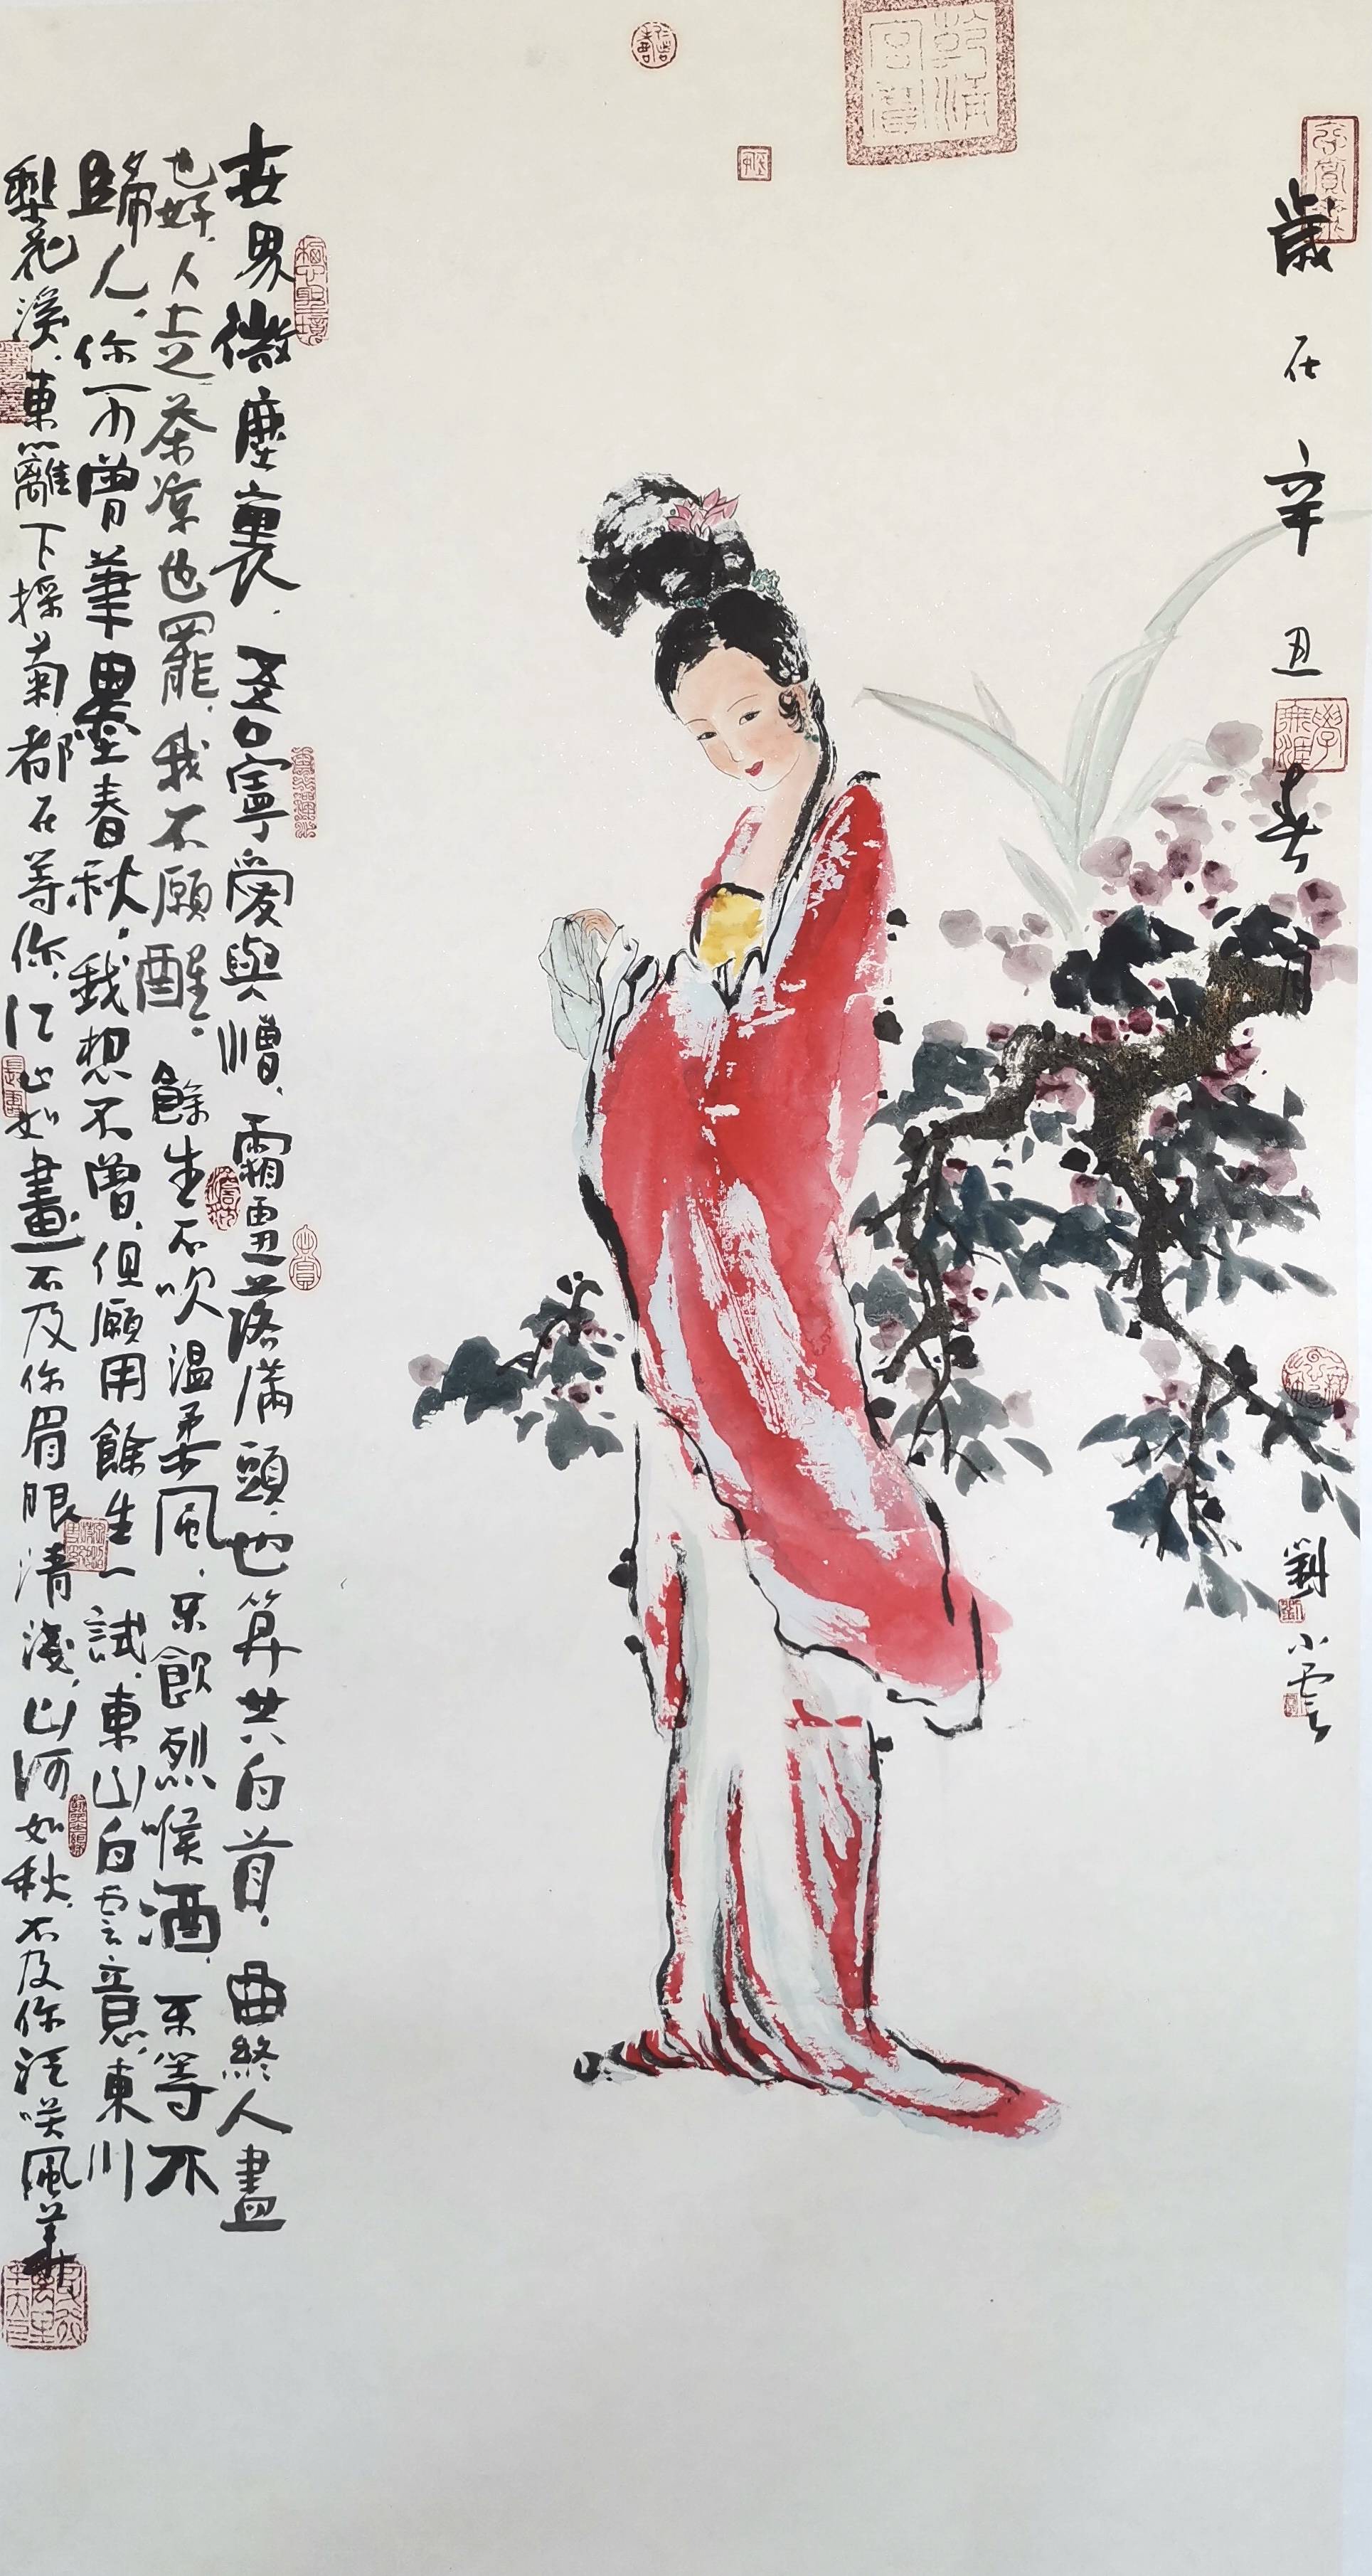 歲在辛丑春月
劉小雲
世界微塵裏，吾寧愛與憎，霜雪落滿頭，也算共白首，曲終人盡
也好，人走茶涼也罷，我不願醒。餘生不吹溫柔風，不飲烈喉酒，不等不
歸人，你可曾筆墨春秋，我想不曾，但願用餘生一試，東山白雲意，東川
梨花溪，東籬下採菊，都在等你，江山如畫不及你眉眼清淺，山河如秋，不及你淺笑風華
乾清宮寶
學無涯